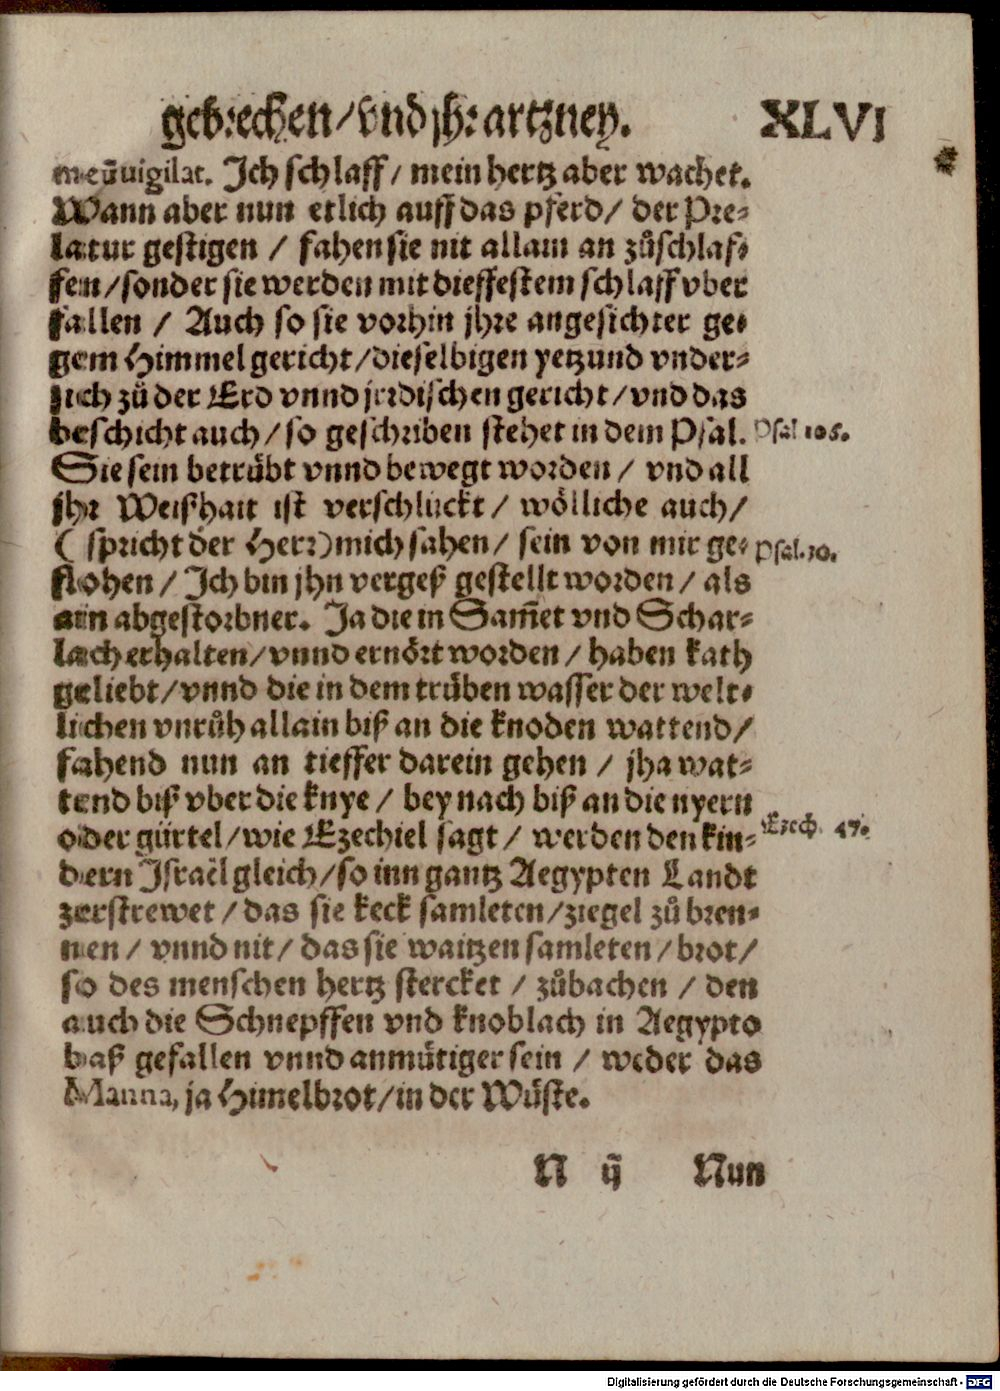 gebrechen/vnd jhr artzney. XLVI
meũ vigilat. Ich schlaff/ mein hertz aber wachet.
Wann aber nun etlich auff das pferd/ der Pre-
latur gestigen / fahen sie nit allain an zůschlaf-
fen/sonder sie werden mit dieffestem schlaff vber
fallen / Auch so sie vorhin jhre angesichter ge-
gem Himmel gericht/dieselbigen yetzund vnder-
sich zů der Erd vnnd jrdischen gericht/vnd das
beschicht auch/so geschriben stehet in dem Psal. Psal 106.
Sie sein betrübt vnnd bewegt worden / vnd all
jhr Weißhait ist verschluckt / wölliche auch/
( spricht der Herr) mich sahen/ sein von mir ge- Psal.30.
flohen / Ich bin jhn vergeß gestellt worden / als
ain abgestorbner. Ja die in Sam̃et vnd Schar-
lach erhalten/vnnd ernört worden / haben kath
geliebt/vnnd die in dem trüben wasser der welt-
lichen vnrůh allain biß an die knoden wattend/
fahend nun an tieffer darein gehen / jha wat-
tend biß vber die knye / bey nach biß an die nyern
oder gürtel/wie Ezechiel sagt / werden den kin- Ezech. 47.
dern Israël gleich/so inn gantz Aegypten Landt
zerstrewet / das sie keck samleten/ziegel zů bren-
nen / vnnd nit/ das sie waitzen samleten/brot/
so des menschen hertz stercket / zůbachen / den
auch die Schnepffen vnd knoblach in Aegypto
baß gefallen vnnd anmütiger sein / weder das
Manna, ja Himelbrot/in der Wüste.
N ij Nun
Digitalisierung gefördert durch die Deutsche Forschungsgemeinschaft - DFG